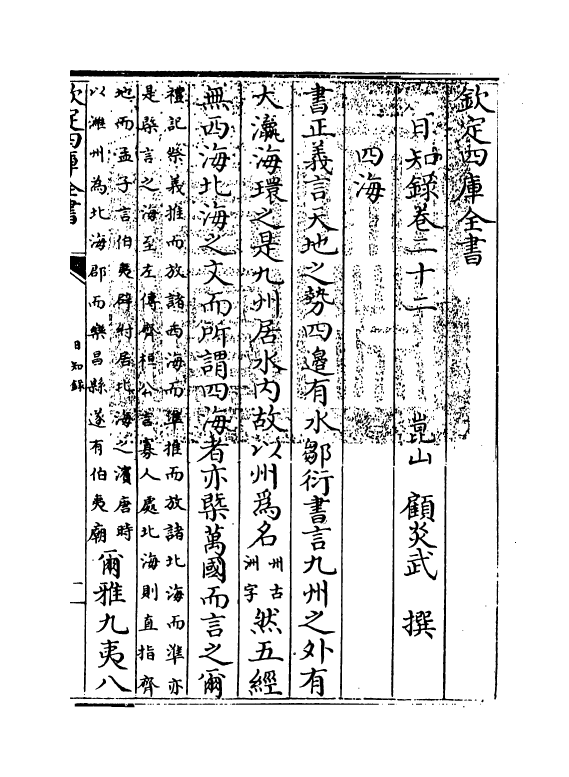 欽定四庫全書
日知録卷二十二　崑山　顧炎武　撰
四海
書正義言天地之勢四邉有水鄒衍書言九州之外有
大瀛海環之是九州居水内故以州爲名州古洲字然五經
無西海北海之文而所謂四海者亦槩萬國而言之爾
禮記祭義推而放諸西海而準推而放諸北海而準亦
是槩言之海至左傳齊桓公言寡人處北海則直指齊
地而孟子言伯夷辟紂居北海之濱唐時
以濰州為北海郡而樂昌縣遂有伯夷廟
爾雅九夷八
欽定四庫全書
日知録